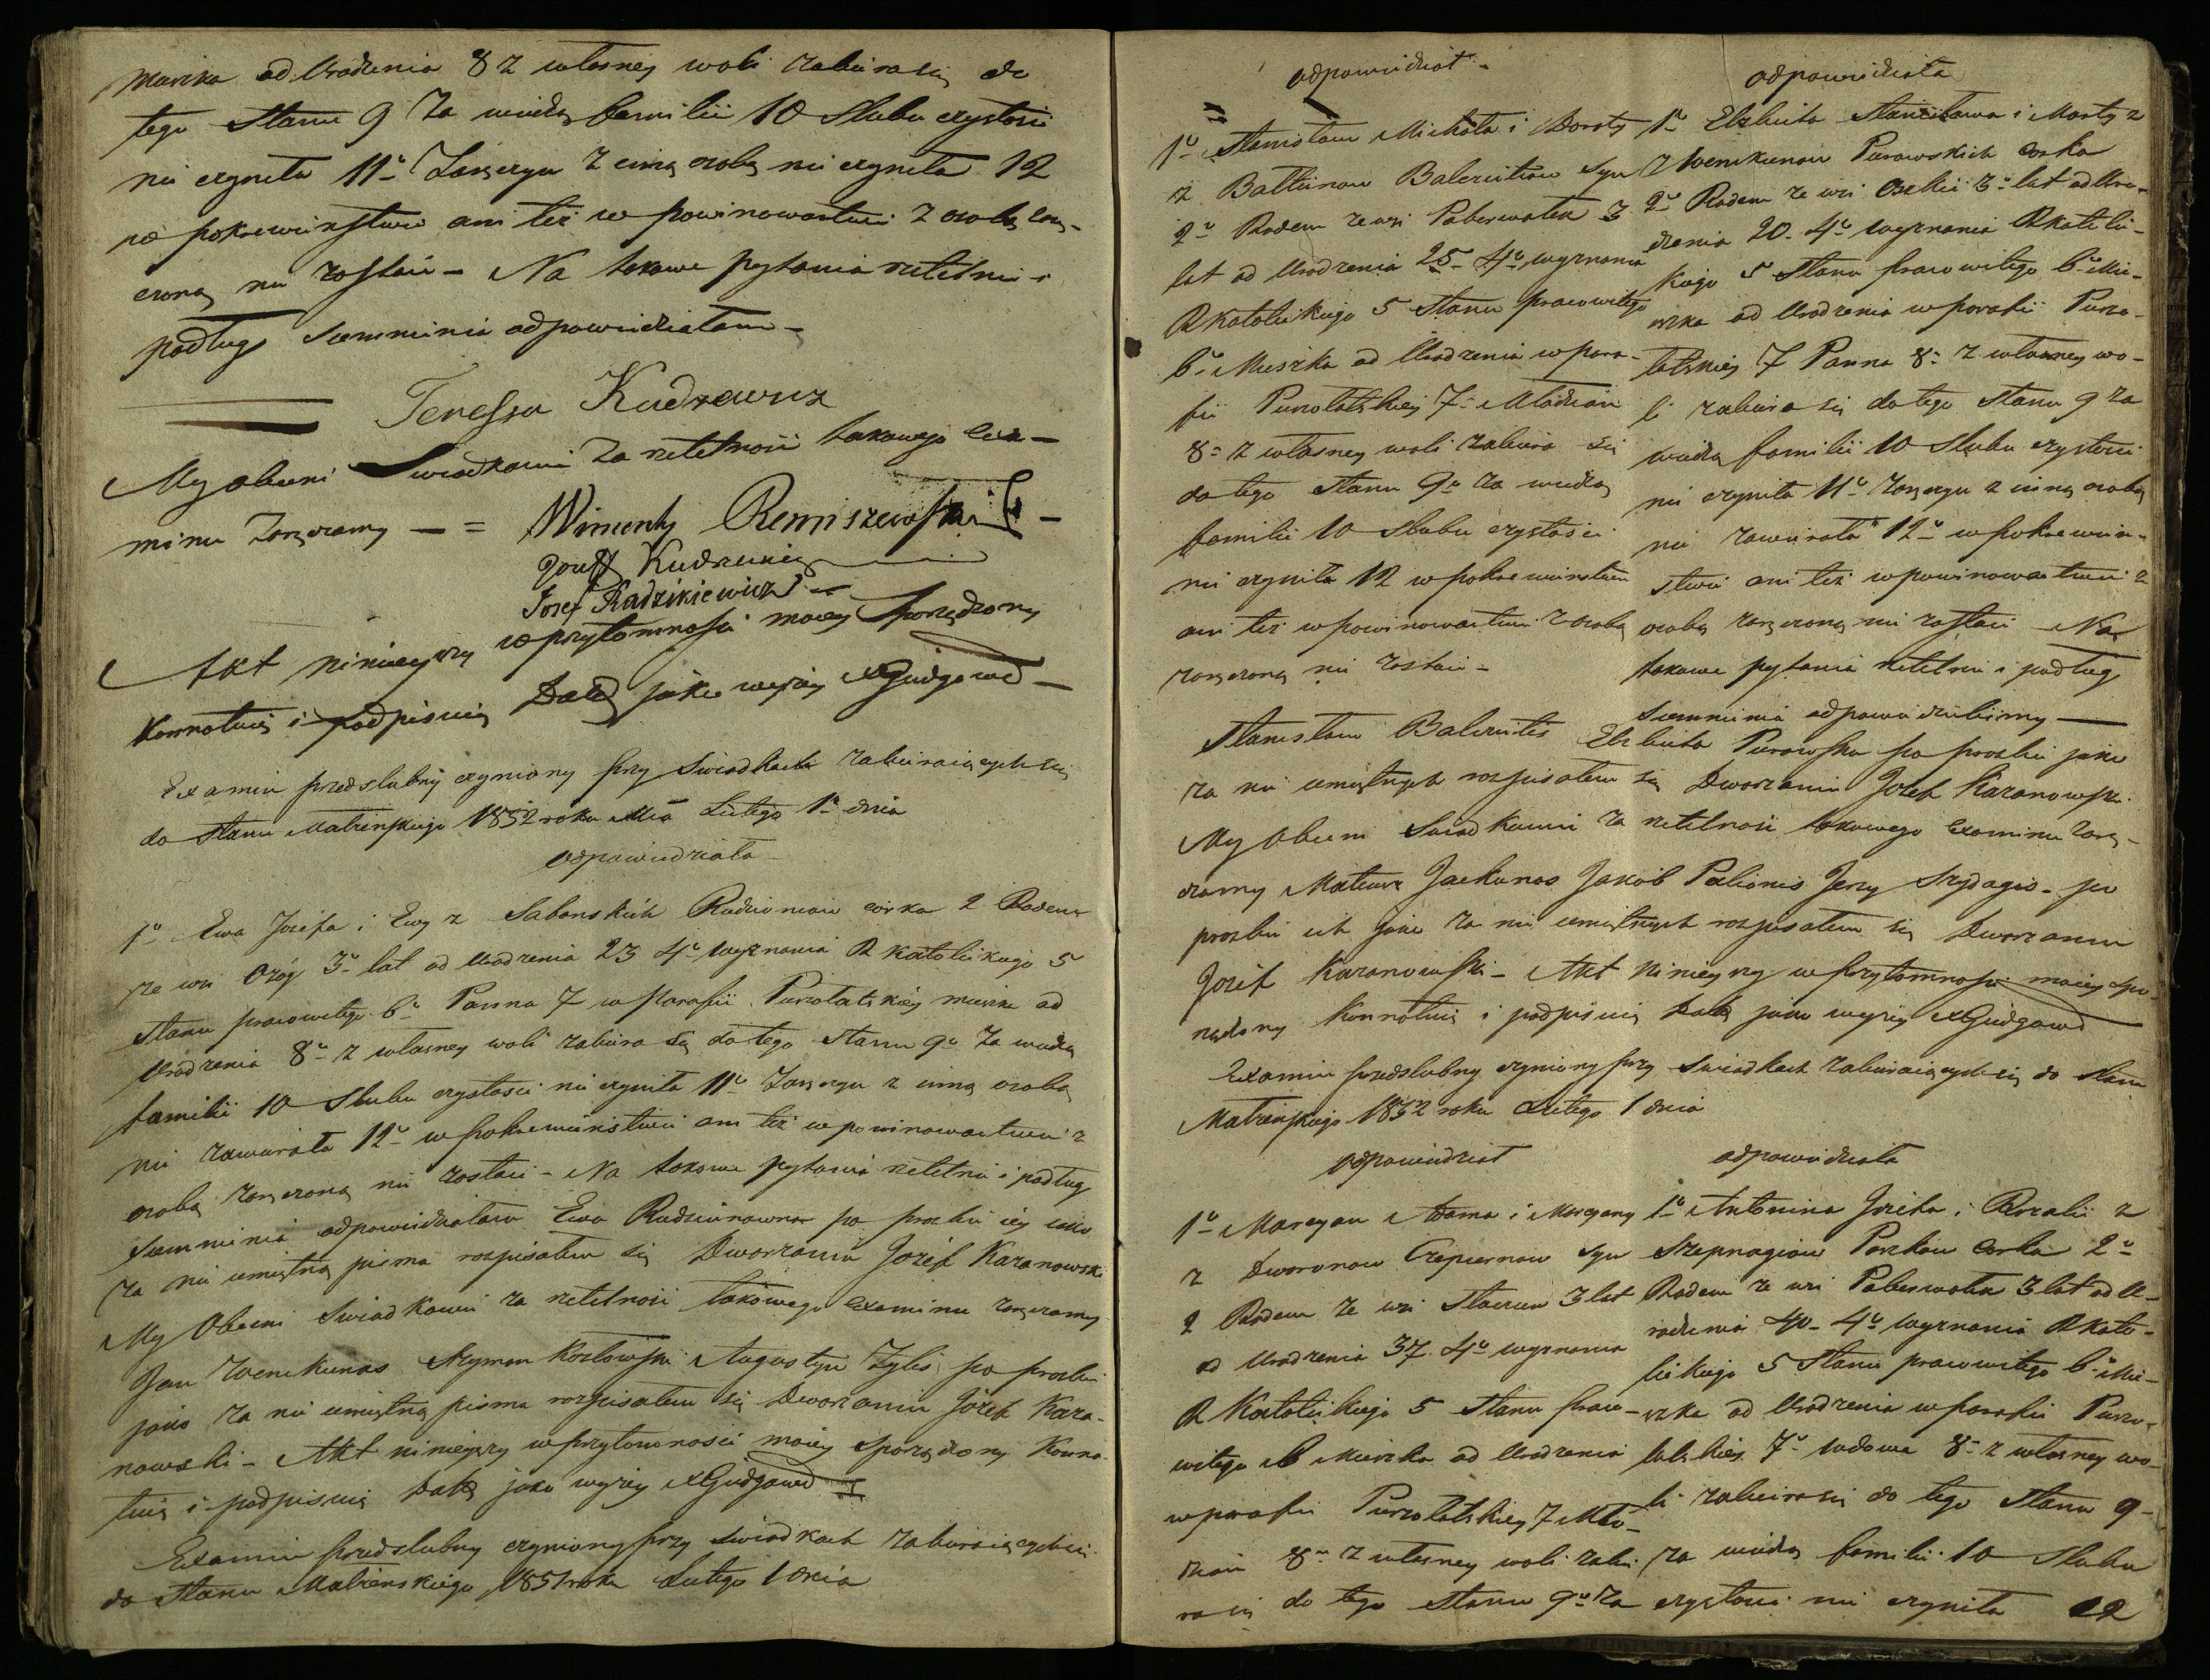 Mieszka od Urodzenia 8 z własney woli zabiera się do
tego Stanu 9 Za wiedzą familii 10 Slubu czystosci
nie czyniła 11° Zaręczyn z inną osobą nie czyniła 12
w pokrewieństwie ani też w powinowactwie z osobą zarę-
czoną nie zostaie – Na takowe pytania rzetelnie i
podług Summienia odpowiedziałam –
Teressa Kudrewicz
My obecni Swiadkami Za rzetelnosc takowego Exa-
minu Zaręczamy – = Wincenty Remiszewski –
Józeff Kudrewicz
Jozef Radzikiewicz –
Akt ninieyszy w przytomnosci moiey Sporządzony
Konnotuię i podpisuię Datą jako wyżey X Giedgowd –
Examin przedslubny czyniony przy Swiadkach zabieraiących się
do Stanu Małżeńskiego 1852 roku Mca Lutego 1° dnia
odpowiedziała
1° Ewa Jozefa i Ewy z Sabanskich Radziunow córka 2 Rodem
ze wsi Ożóg 3° lat od Urodzenia 23 4° Wyznania R katolickiego 5
Stanu pracowitego 6° Panna 7 w Parafii Purzolatskiey mieszka od
Urodzenia 8° z własney woli zabiera się do tego Stanu 9° Za wiedzą
familii 10 Slubu czystosci nie czyniła 11° Zaręczyn z inną osobą
nie zawierała 12° w pokrewieństwie ani też w powinowactwie z
osobą zaręczoną nie zostaie – Na takowe pytania rzetelnie i podług
Summienia odpowiedziałam Ewa Radziunowna po prozbie iey jako
za nie umiętną pisma rozpisałem się Dworzanin Jozef Karanowski
My Obecni Swiadkami za rzetelnosc takowego Examinu zaręczamy
Jan Wenckunas Szymon Kozłowski Augustyn Zylis po prozbie
jako za nie umiętną pisma rozpisałem się Dworzanin Józef Kara-
nowski – Akt ninieyszy w przytomnosci moiey sporządzony Konno-
tuię i podpisuię Datą jako wyżey X Giedgowd
Examin przedslubny czyniony przy swiadkach zabieraiących się
do Stanu Małżenskiego 1851 roku Lutego 1 dnia
odpowiedział –
1° Stanisław Michała i Doroty
z Baltunow Balcewiczow Syn
2° Rodem ze wsi Poberwatek 3
lat od Urodzenia 25 – 4° wyznania
R Katolickiego 5 Stanu pracowitego
6° Mieszka od Urodzenia w para-
fii Purzolatskiey 7° Młodzian
8° z własney woli zabiera się
do tego Stanu 9° za wiedzą
familii 10 Slubu czystosci
nie czynił 12 w pokrewienstwie
ani też w powinowactwie z osobą
zaręczoną nie zostaie –
odpowiedziała
1° Elzbieta Stanisława i Marty z
Wenckunow Purowskich corka
2° Rodem ze wsi 3° lat od Uro-
dzenia 20 – 4° Wyznania R Katolic-
kiego 5 Stanu pracowitego 6° Mie-
szka od Urodzenia w parafii Purzo-
latskiey 7 Panna 8° z własney wo-
li zabiera się do tego Stanu 9 za
wiedzą familii 10 Slubu czystosci
nie czyniła 11° zaręczyn z inną osobą
nie zawierała 12° w pokrewien-
stwie ani też w powinowactwie z
osobą zaręczoną nie zostaie – Na
takowe pytania rzetelnie i podług
Summienia odpowiedzielismy –
Stanisław Elzbieta Purowska po prozbie jako
za nie umiętnych rozpisałem się Dworzanin Jozef Karanowski
My Obecni Swiadkami za rzetelnosc takowego Examinu Zarę-
czamy Mateusz Jackunas Jakób Palionis Jerzy Szydagis – po
prozbie ich jako za nie umiętnych rozpisałem się Dworzanin
Józef Karanowski – Akt Ninieyszy w przytomnosci moiey spo-
rządzony Konnotuię i podpisuię Datą jako wyżey X Giedgowd
Examin przedslubny czyniony przy Swiadkach zabieraiących się do Stanu
Małżeńskiego 1852 roku Lutego 1 dnia
odpowiedział
1° Maregan Adama i Morgany
z Dworonow Czepiernow Syn
2 Rodem ze wsi 3 lat
od Urodzenia 37 4° wyznania
R Katolickiego 5 Stanu praco-
witego 6 Mieszka od Urodzenia
w parafii Purzolatskiey 7 Mło-
dzian 8° z własney woli zabie-
ra się do tego Stanu 9° Za
odpowiedziała
1° Antonina Jozefa i Rozalii z
Szepnagiow Corka 2°
Rodem ze wsi Poberwatek 3 lat od U-
rodzenia 40 – 4° wyznania R Kato-
lickiego 5 Stanu pracowitego 6° Mie-
szka od Urodzenia w parafii Purzo-
latskiey 7° wdowa 8° z własney wo-
li zabiera się do tego Stanu 9 –
za wiedzą familii 10 Slubu
czystosci nie czyniła 12